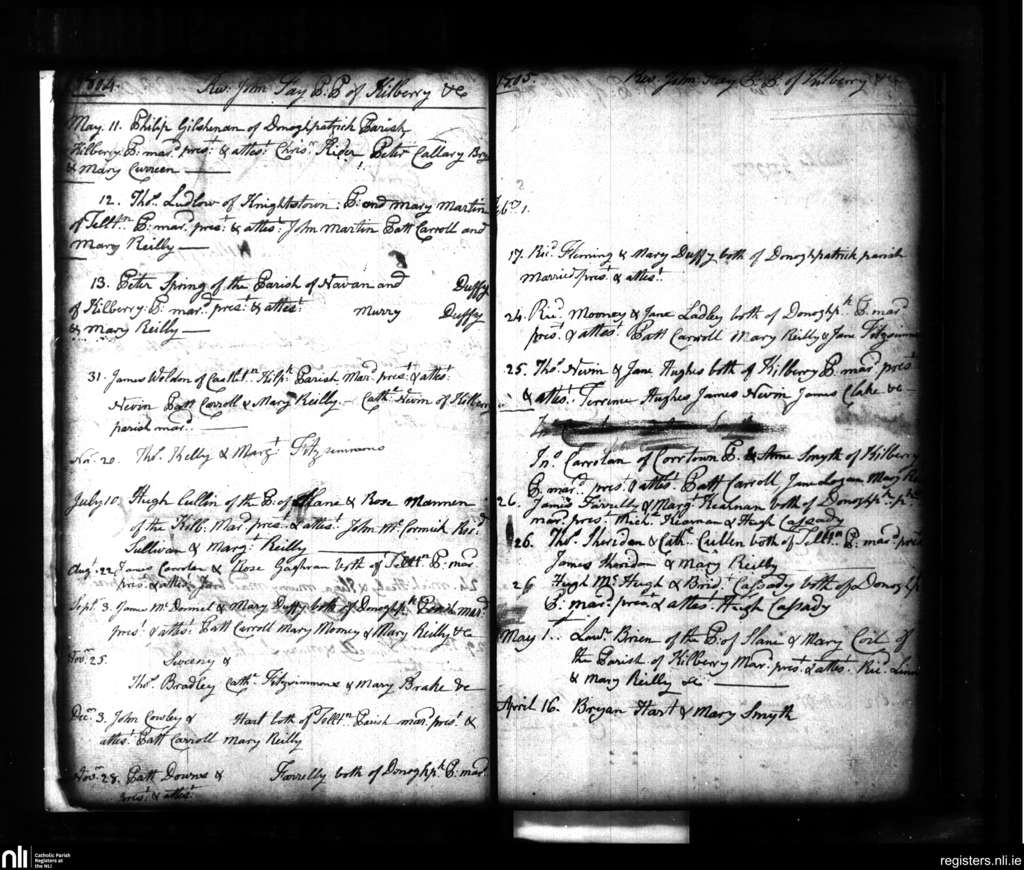 1804. Rev. John Fay P. P of Kilberry &c
May. 11. Philip Gilshenan of Donoghpatrick Parish
Kilberry P: mar.d pres.t & attes.t Chris.r Peter Callary
& Mary Curreen
12. Tho.s Ludlow of Knightstown: P: and Mary Martin
of Tellt.n P: mar.d pres.t & attes.t John Martin Patt Carroll and
Mary Reilly
13. Peter Spring of the Parish of Navan and Duffy
of Kilberry: P: mar.d pres.t & attes.t Murry Duffy
& Mary Reilly
31. James Weldon of Parish Mar.d pres.t & attes.t
Nevin Patt Carroll & Mary Reilly Cath: Nevin of
parish mar.d
20. Tho.s Kelly & Marg.t Fitzsimmons
July 10. Hugh Cullin of the P: of Slane & Rose
of the Kilb: Mar.d pres.t & attes.t John Mc Cormick
Sullivan & Marg.t Reilly
Aug.t 22. James & Rose both of Tellt.n P: mar
pres.t & attes.t
Sept.r 3. James Mc & Mary Duffy both of Donoghp.k Parish mar.d
pres.t & attes.t Patt Carroll Mary & Mary Reilly &c
Nov.r 25. Sweeny &
Tho.s Bradley Cath.n Fitzsimmons & Mary Brake &c
Dec.r 3. John Cowley & Hart both of Tellt.n Parish mar.d pres.t &
attes.t Patt Carroll Mary Reilly
Nov.r 28. Patt Downs & Farrelly both of Donoghp.k P: mar.d
pres.t & attes.t
1805. Rev. John Fay P. P. of Kilberry &c
17. Ric.d Fleming & Mary Duffy both of Donoghpatrick parish
Married pres.t & attes.t
24. Ric.d Mooney & Jane Ladley both of Donoghp.k P: mar.d
pres.t & attes.t Patt Carroll Mary Reilly & Jane
25. Tho.s Nevin & Jane Hughes both of Kilberry P: mar.d pres.t
& attes.t Terrence Hughes James Nevin James Clake &c
Jn.o Carrolan of Corrtown P: & Anne Smyth of Kilberry
P: mar.d pres.t & attes.t Patt Carroll Jane Logan Mary
26. James Farrelly & Marg.t Kearnan both of Donoghp.k
mar.d pres.t Mich.l Kearnan & Hugh Cassady
26. Tho.s Sheridan & Cath.e Cullen both of Tellt.n P: mar.d pres.t
James Sheridan & Mary Reilly
26 Hugh Mc Hugh & Brid.t Cassady both of Donoghp
P: mar.d pres.t & attes.t Hugh Cassady
May 1. Law.e Brien of the P: of Slane & Mary Coil of
the Parish of Kilberry Mar.d pres.t & attes.t Ric.d
& Mary Reilly &c
April 16. Bryan Hart & Mary Smyth
nli
Catholic Parish
Registers at
the NLI
registers.nli.ie